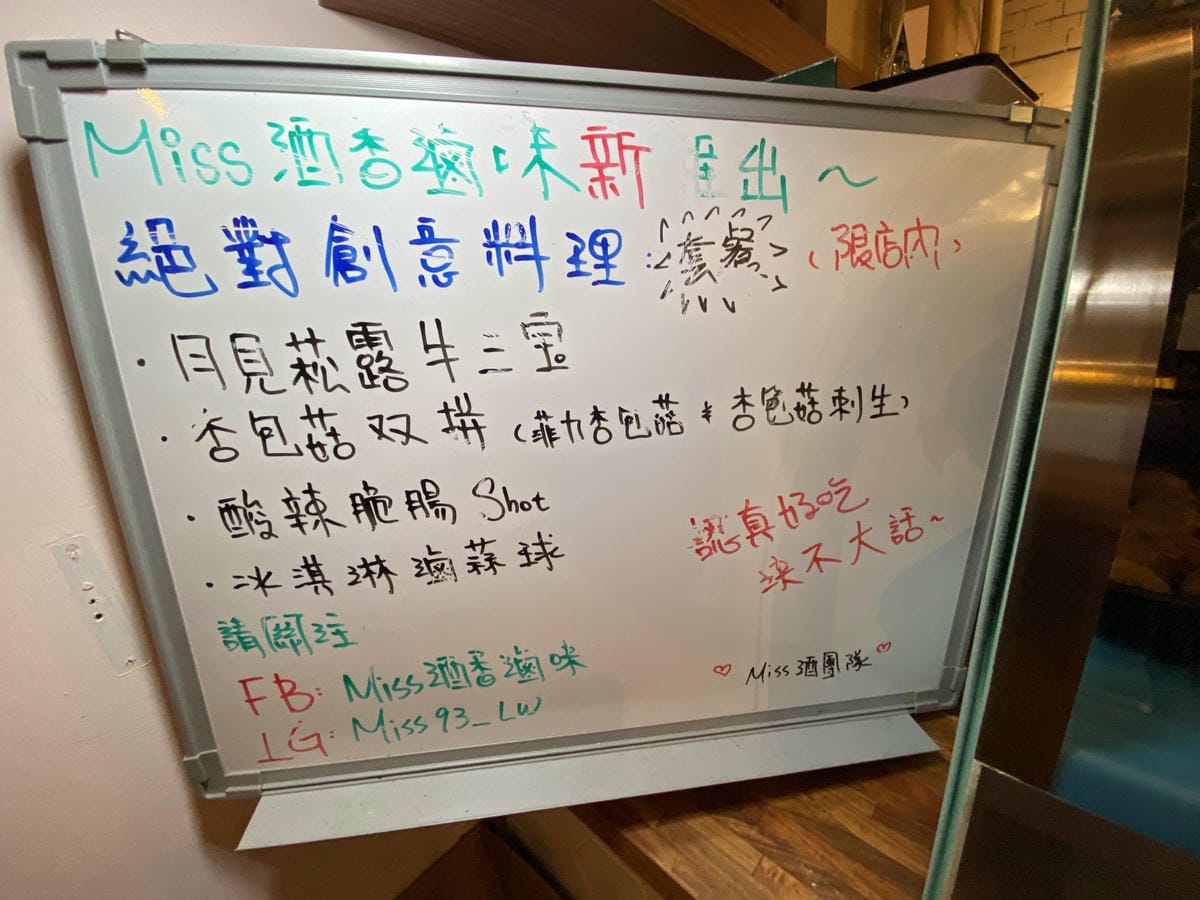 Miss 酒香滷味新推出~
絕對創意料理:套餐(限店內)
·月見菘露牛三宝
·杏包菇双拼(菲力杏包菇&杏包菇刺生)
·酸辣脆腸 Shot
·冰淇淋滷蒜球
認真好吃
決不大話~
請關注
FB: Miss酒香滷味
IG: Miss93_LW
♡ Miss酒團隊 ♡